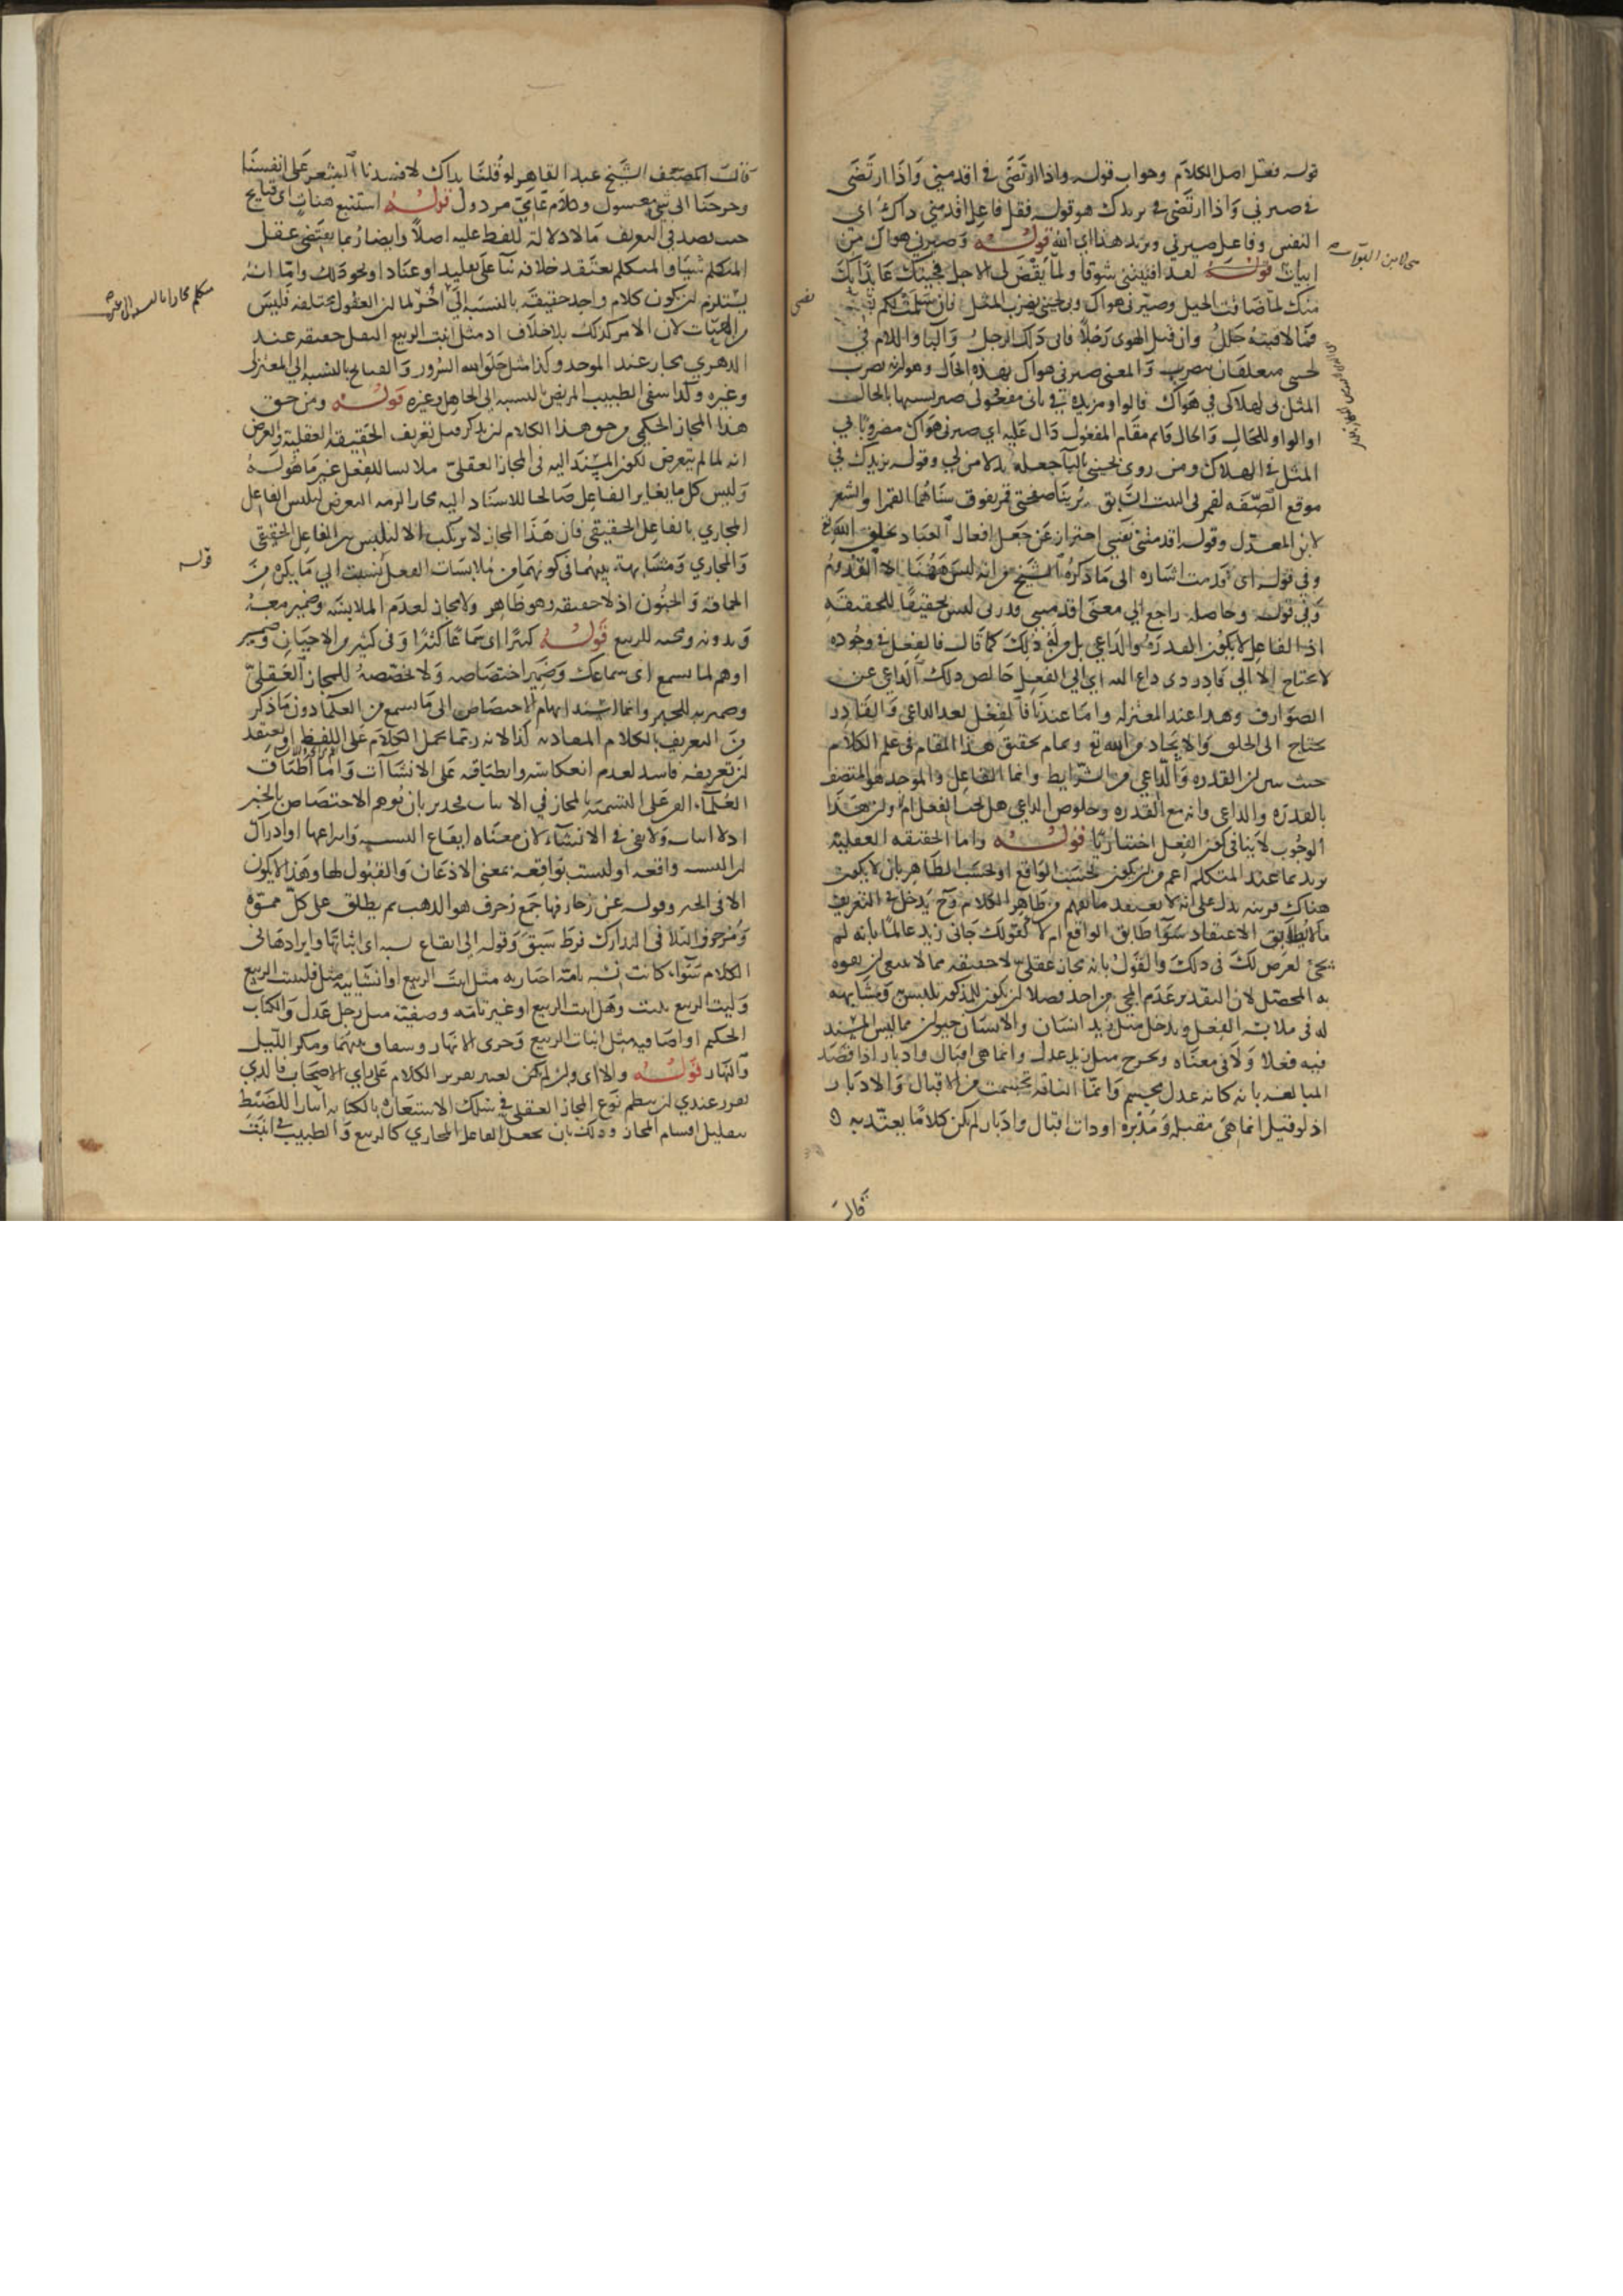 قوله فقل اصل الكلام وجواب قوله واذا ارتضى في اقدمني واذا ارتضى
في صيرني واذا ارتضى في يزيدك هو قوله فقل فاعل اقدمني ذاك اي
النفس وفاعل صيرني ويزيد هذا اي الله قوله وصيرني هواك من
ابيات قوله لقد افنيتني شوقا ولما يقض لي الاجل فجيتك عايذا بك
منك لما ضاقت الحيل وصيرني هواك وبي لحيني يضرب المثل فان سلمت لكم
فما لاقيته جلل وان قتل الهوى رجلا فاني ذلك الرجل والباء واللام في
لحيني متعلقان بيضرب والمعنى صيرني هواك بهذه الحال وهو ان يضرب
المثل بي لهلاكي في هواك قالوا ومزيدة في ثاني مفعولي صير تشبيها بالحال
او الواو للحال والحال قائم مقام المفعول دال عليه اي صيرني هواك مضروبا بي
المثل في الهلاك ومن روى بحيني بالباء جعله بدلا من بي وقوله يزيدك في
موقع الصفة لقمر في البيت السابق يرينا صفحتي قمر يفوق سناهما القمرا والشعر
لابن المعذل وقوله اقدمتني نفسي احتراز عن جعل افعال العباد بخلق الله تع
وفي قوله اي قدمت اشارة الى ما ذكره الشيخ من انه ليس ههنا الا القدوم
وفي قوله وحاصله راجع الي معنى اقدمني وقدرتي ليس تحقيقا للحقيقة
اذ الفاعل لا يكون القدرة والداعي بل من له ذلك كما قال فالفعل في وجوده
لا يحتاج الا الى قادر ذي داع له اي الي الفعل خالص ذلك الداعي عن
الصوارف وهذا عند المعتزلة واما عندنا فالفعل بعد الداعي والقادر
يحتاج الى الخلق والايجاد من الله تع وتمام تحقيق هذا المقام في علم الكلام
حيث بين ان القدرة والداعي من الشرايط وانما الفاعل والموجد هو المتصف
بالقدرة والداعي وانه مع القدرة وخلوص الداعي هل يجب الفعل ام لا وان هذا
الوجوب لا ينافي كون الفعل اختياريا قوله واما الحقيقة العقلية
يريد بما عند المتكلم اعم من ان يكون بحسب الواقع او بحسب الظاهر بان لا يكون
هناك قرينة تدل على انه لا يعتقد ما يفهم من ظاهر الكلام وح يدخل في التعريف
ما لا يطابق الاعتقاد سواء طابق الواقع ام لا كقولك جاني زيد عالما بانه لم
يجئ لغرض لك في ذلك والقول بانه مجاز عقلي لا حقيقة مما لا ينبغي ان يفوه
به المحصل لان التقدير عدم المجي من احد فضلا ان يكون للمذكور تلبس ومشابهة
له في ملابسة الفعل ويدخل مثل زيد انسان والانسان حيوان مما ليس المسند
فيه فعلا ولا في معناه ويخرج مثل زيد عدل وانما هي اقبال وادبار اذا قصد
المبالغة بانه كانه عدل تجسم وانما الناقة تجسمت من الاقبال والادبار
اذ لو قيل انما هي مقبلة ومدبرة او ذات اقبال وادبار لم يكن كلاما يعتد به
قال
قال المصنف الشيخ عبد القاهر لو قلنا بذاك لافسدنا الشعر على انفسنا
وخرجنا الى شيء مغسول وكلام عامي مرذول قوله استتبع هنات اي قبايح
حيث يصدق التعريف ما لا دلالة للفظ عليه اصلا وايضا ربما يقتضي عقل
المتكلم شيئا والمتكلم يعتقد خلافه بناء على تقليد او عناد او نحو ذلك واما انه
يستلزم ان يكون كلام واحد حقيقة بالنسبة الي اخر لما ان العقول مختلفة فليس
من الهنات لان الامر كذلك بلا خلاف اذ مثل انبت الربيع البقل حقيقة عند
الدهري مجاز عند الموحد وكذا مثل خلق الله السرور والقبايح بالنسبة الي المعتزلي
وغيره وكذا شفى الطبيب المريض بالنسبة الى الجاهل وغيره قوله ومن حق
هذا المجاز الحكمي من حق هذا الكلام ان يذكر قبل تعريف الحقيقة العقلية والغرض
انه لما لم يتعرض لكون المسند اليه في المجاز العقلي ملابسا للفعل غير ما هو له
وليس كل ما يغاير الفاعل صالحا للاسناد اليه مجازا لزمه التعرض لتلبس الفاعل
المجازي بالفاعل الحقيقي فان هذا المجاز لا يرتكب الا لتلبس من الفاعل الحقيقي
والمجازي ومشابهة بينهما في كونهما من ملابسات الفعل لنسبت الي ما يكره من
الحماقة والجنون اذ لا حقيقة وهو ظاهر ولا مجاز لعدم الملابسة وضمير معه
وبدونه ومجيئه للربيع قوله كثيرا اي سماعا كثيرا وفي كثير من الاحيان وضمير
اوهم لما يسمع اي سماعك وضمير اختصاصه ولا تخصصه للمجاز العقلي
وضمير به للخبر وانما اسند ايهام الاختصاص الى ما يسمع من العلماء دون ما ذكر
من التعريف بالكلام المفاد به كذا لانه ربما يحمل الكلام على اللفظ او يعتقد
ان تعريفه فاسد لعدم انعكاسه وانطباقه على الانشاآت واما اطباق
العلماء الغر على التسمية بالمجاز في الاثبات فجدير بان يوهم الاختصاص بالخبر
اذ لا اثبات ولا نفي في الانشاء لان معناه ايقاع النسبة وانتزاعها او ادراك
ان النسبة واقعة او ليست بواقعة بمعنى الاذعان والقبول لها وهذا لا يكون
الا في الخبر وقوله عن زخارفها جمع زخرف هو الذهب ثم يطلق على كل مموه
ومزخرف والتلافي التدارك فرط سبق وقوله الى ايقاع نسبة اي اثباتها وايرادها في
الكلام سواء كانت نسبة تامة اخبارية مثل انبت الربيع او انشائية مثل فلينبت الربيع
وليت الربيع ينبت وهل انبت الربيع او غير تامة وصفية مثل رجل عدل والكتاب
الحكيم او اضافية مثل انبات الربيع وجري الانهار وشقاق بينهما ومكر الليل
والنهار قوله والا اي وان لم يكن لغير تقرير الكلام على راي الاصحاب فالذي
تقرر عندي ان ينظم نوع المجاز العقلي في سلك الاستعارة بالكناية ايثارا للضبط
بتقليل اقسام المجاز وذلك بان يجعل الفاعل المجازي كالربيع والطبيب في انبت
قوله